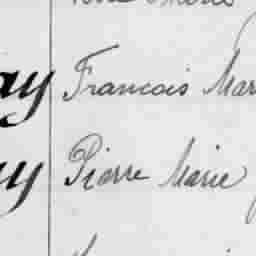 ay Francois Mar
y Pierre Marie